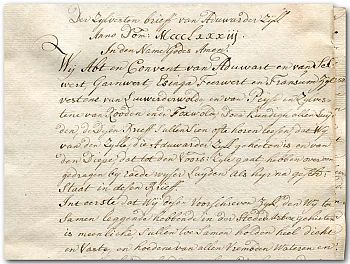 Der Zylvesten brieff van Aduwarder Zijll
Anno Dom: MCCCLXXXIIJ.
In den Name Godes Amen.
Wij Abt en Convent van Aduwart en van Sel-
wert Garnwert Esinga Feerwert en Fransum Zijl
vestene van Lieuwerderwolde en van Peyse en Zijlves-
tene van Rooden ende Foxwolda, Doen kundigh allen Luy-
den, de desen Brieff sullen sien ofte horen lesen, dat Wij
van den Zijle, die Aduwarder Zijl geheten is en van
den Diepe dat tot den Voors. Zijle gaet, hebben over een
gedragen bij raede wijser Luyden, als hijr na geschr.
Staat in desen Brieff.
Int eerste dat Wij onse Voorschreven Zijl den Wij to
Samen leggende hebbende en den geheten
is meenlicke sullen to samen holden heel dicht
en Vaste, en hoedene van allen Vremden Wateren en